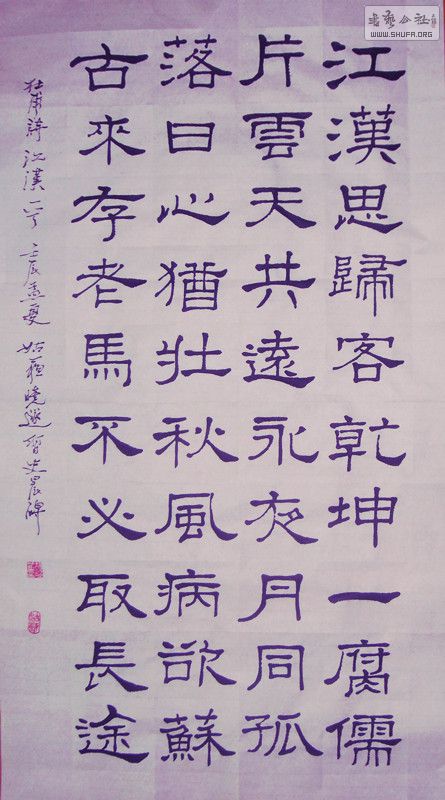 江漢思歸客乾坤一腐儒
片雲天共遠永夜月同孤
落日心猶壯秋風病欲蘇
古來存老馬不必取長途
杜甫詩 江漢一首 壬辰孟夏 姑蘇 習史晨碑
書藝公社
WWW.SHUFA.ORG